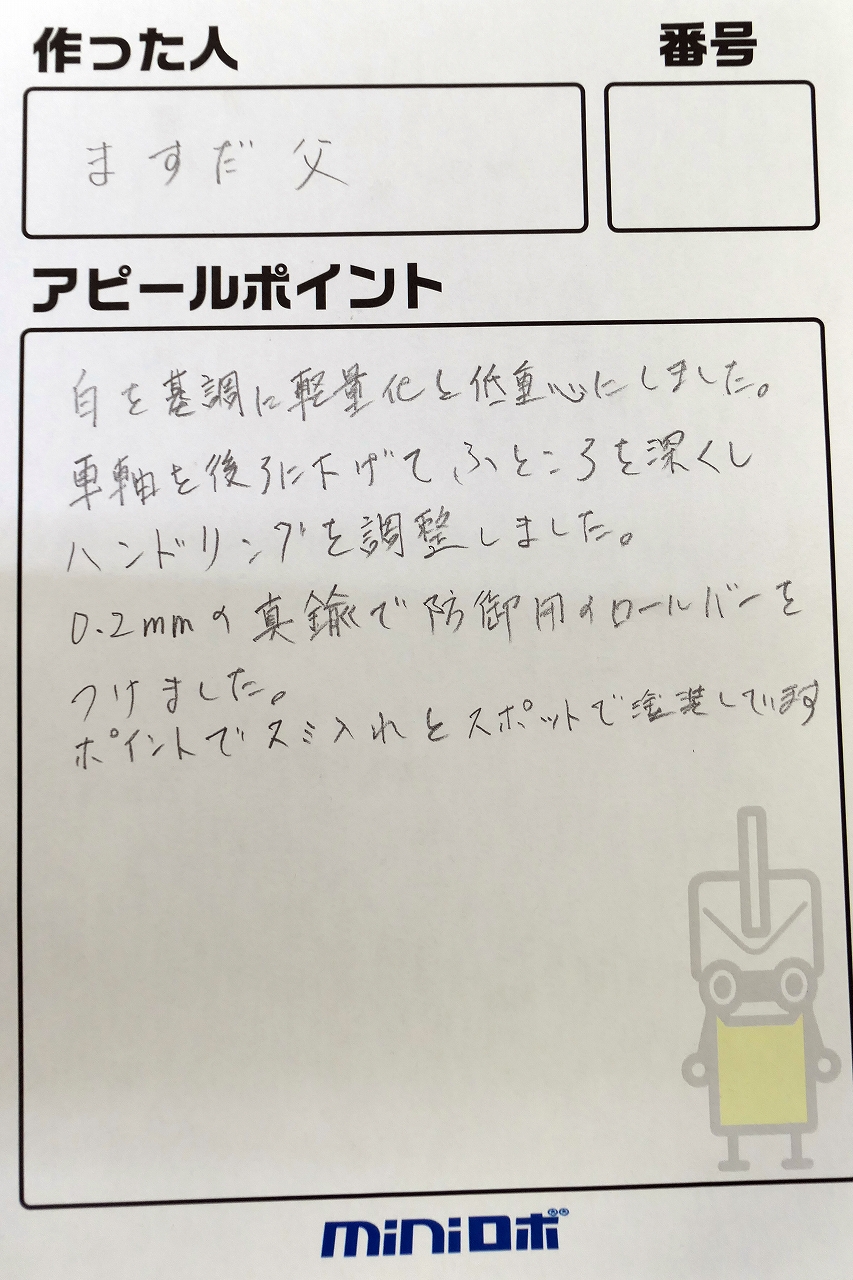 作った人
番号
ますだ 父
アピールポイント
白を基調に軽量化と低重心にしました。
車軸を後ろに下げてふところを深くし
ハンドリングを調整しました。
0.2mmの真鍮で防御用のロールバーを
つけました。
ポイントでスミ入れとスポットで塗装しています
miniロボ